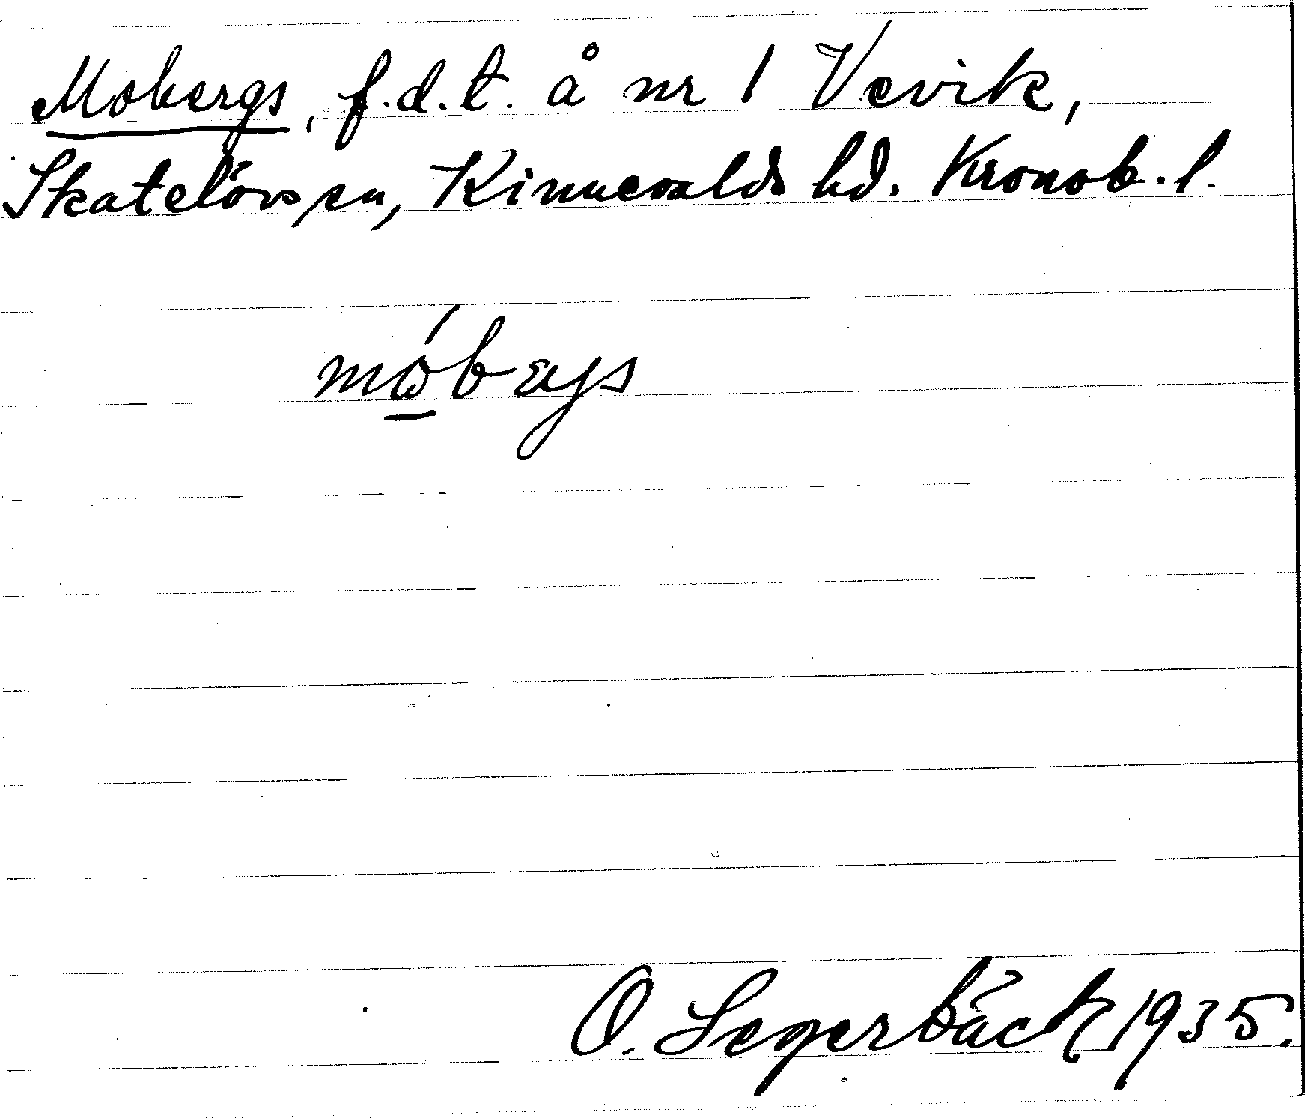 Mobergs, f.d.t. å nr 1 Vevik,
Skatelövs sn, Kinnevalds hd. Kronob. l.
móbærjs
O. Segerbäck 1935.